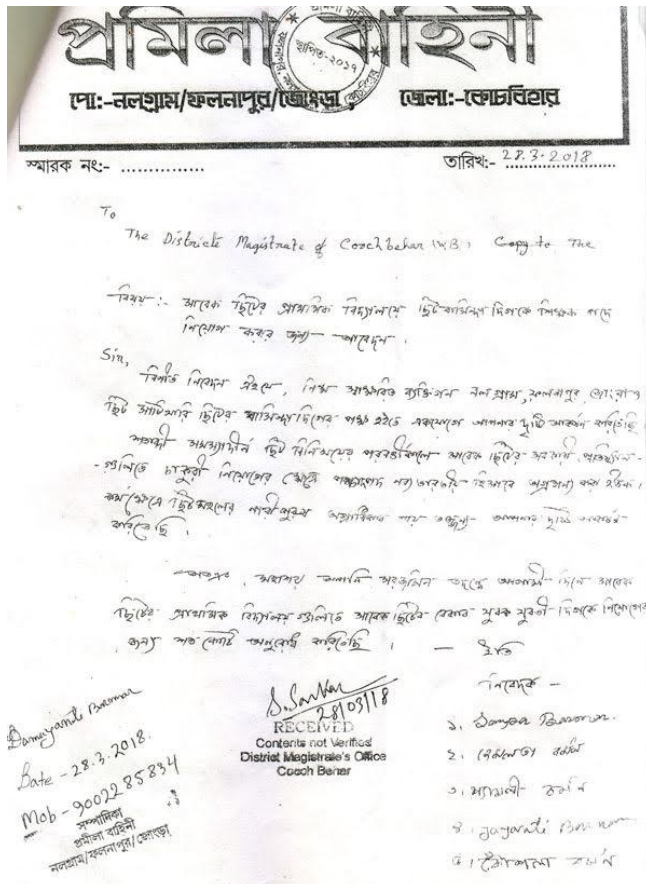 প্রমিলা বাহিনী
স্থাপিত-২০১৭
পো:-নলগ্রাম/ফলনাপুর/জোংড়া জেলা:-কোচবিহার
স্মারক নং:- ............... তারিখ:- 28.3.2018
To
The Districte Magistrate of Coochbehar (W.B) Copy to The
বিষয়:- সাবেক ছিটের প্রাথমিক বিদ্যালয়ে ছিটবাসিন্দা দিগকে শিক্ষক পদে
নিয়োগ করার জন্য আবেদন।
Sir,
বিনীত নিবেদন এই যে, নিম্ন স্বাক্ষরিত ব্যক্তিগন নলগ্রাম, ফলনাপুর, জোংড়া ও
ছিট বাসিন্দাদিগের পক্ষ হইতে একযোগে আপনার দৃষ্টি আকর্ষন করিতেছি
ছিট বিনিময়ের পরবর্তীকালে সাবেক ছিটের সরকারী প্রতিষ্ঠান-
গুলিতে চাকুরী নিয়োগের ক্ষেত্রে নব্য ভারতীয় হিসাবে অগ্রগন্য করা হউক।
ছিটমহলের নারী পুরুষ আপনার দৃষ্টি আকর্ষন
করিতেছি।
অতএব, মহাশয় আপনি তদন্তে আগামী দিনে সাবেক
ছিটের প্রাথমিক বিদ্যালয় গুলিতে সাবেক ছিটের বেকার যুবক যুবতী দিগকে নিয়োগের
জন্য অনুরোধ করিতেছি। — ইতি
নিবেদক —
১. Barman
২. বর্মন
৩. বর্মন
৪. Jayanti Barman
৫. কৌশলা বর্মন
S. Sarkar
28/03/18
RECEIVED
Contents not Verified
District Magistrate's Office
Cooch Behar
Damayanti Barman
Date - 28.3.2018.
Mob - 9002285834
সম্পাদিকা
প্রমীলা বাহিনী
নলগ্রাম/ফলনাপুর/জোংড়া